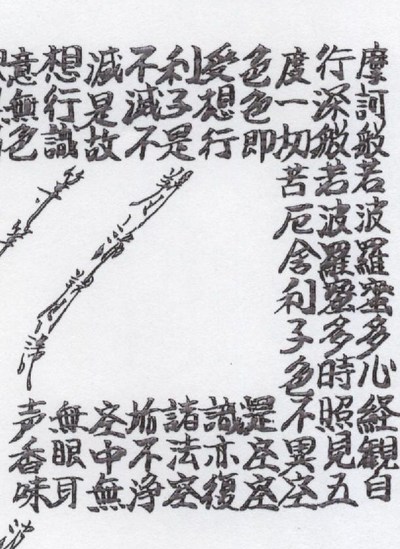 摩訶般若波羅蜜多心経観自
行深般若波羅蜜多時照見五
度一切苦厄舎利子色不異空
色色即是空空
受想行識亦復
利子是諸法空
不滅不垢不浄
滅是故空中無
想行識無眼耳
意無色声香味